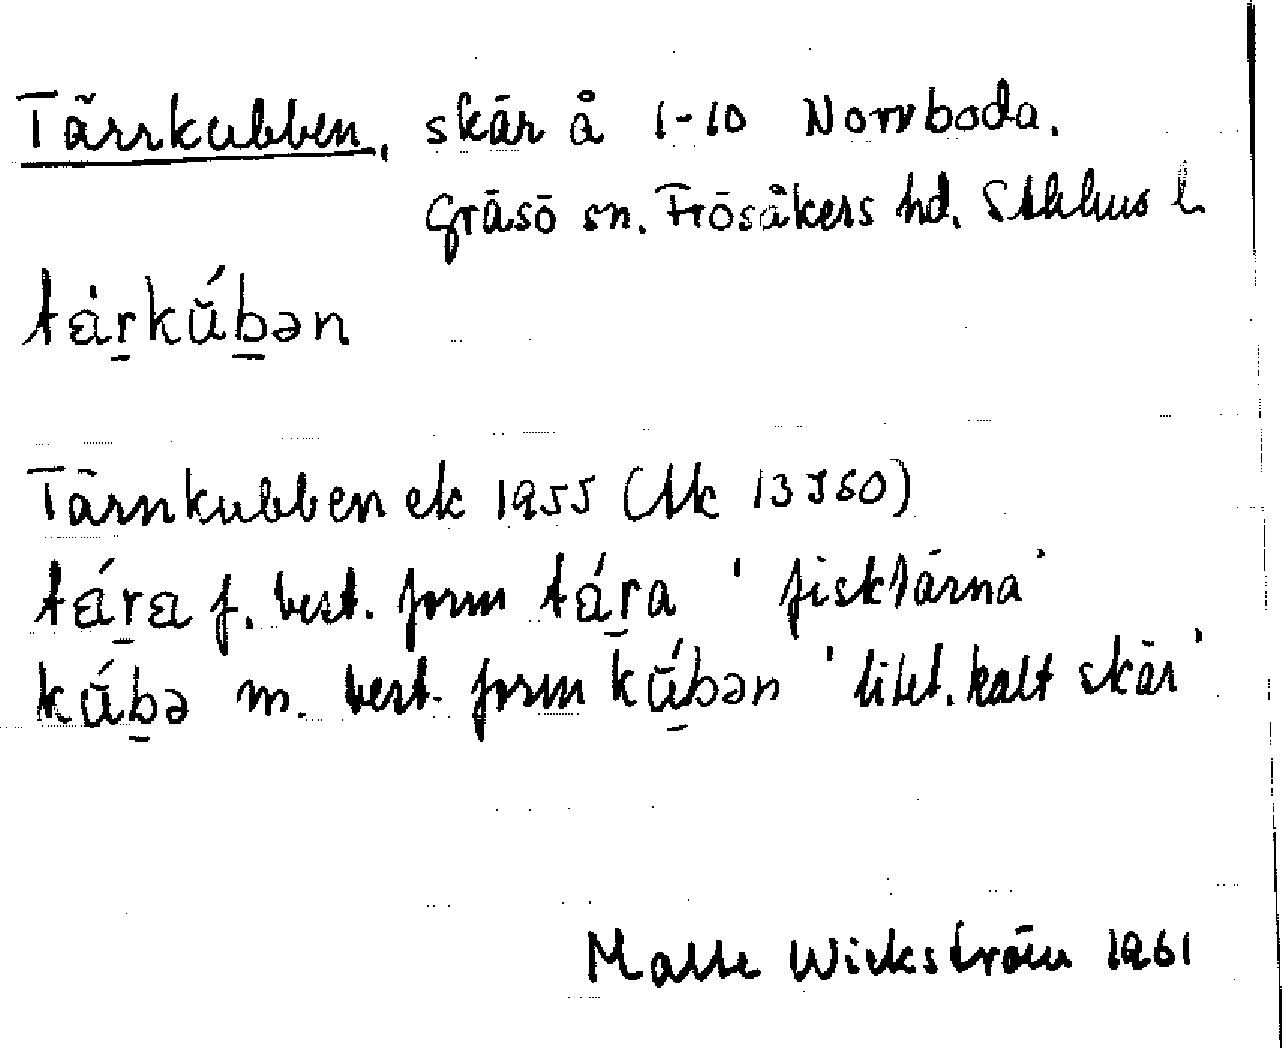 Tärrkubben, skär å 1-10 Norrboda.
Gräsö sn. Frösåkers hd. Sthlms l.
tárkúbən
Tärnkubben ek 1955 (Mk 13560)
tára f. best. form tára 'fisktärna'
kúbə m. best. form kúbən 'litet. kalt skär'
Malte Wickström 1961